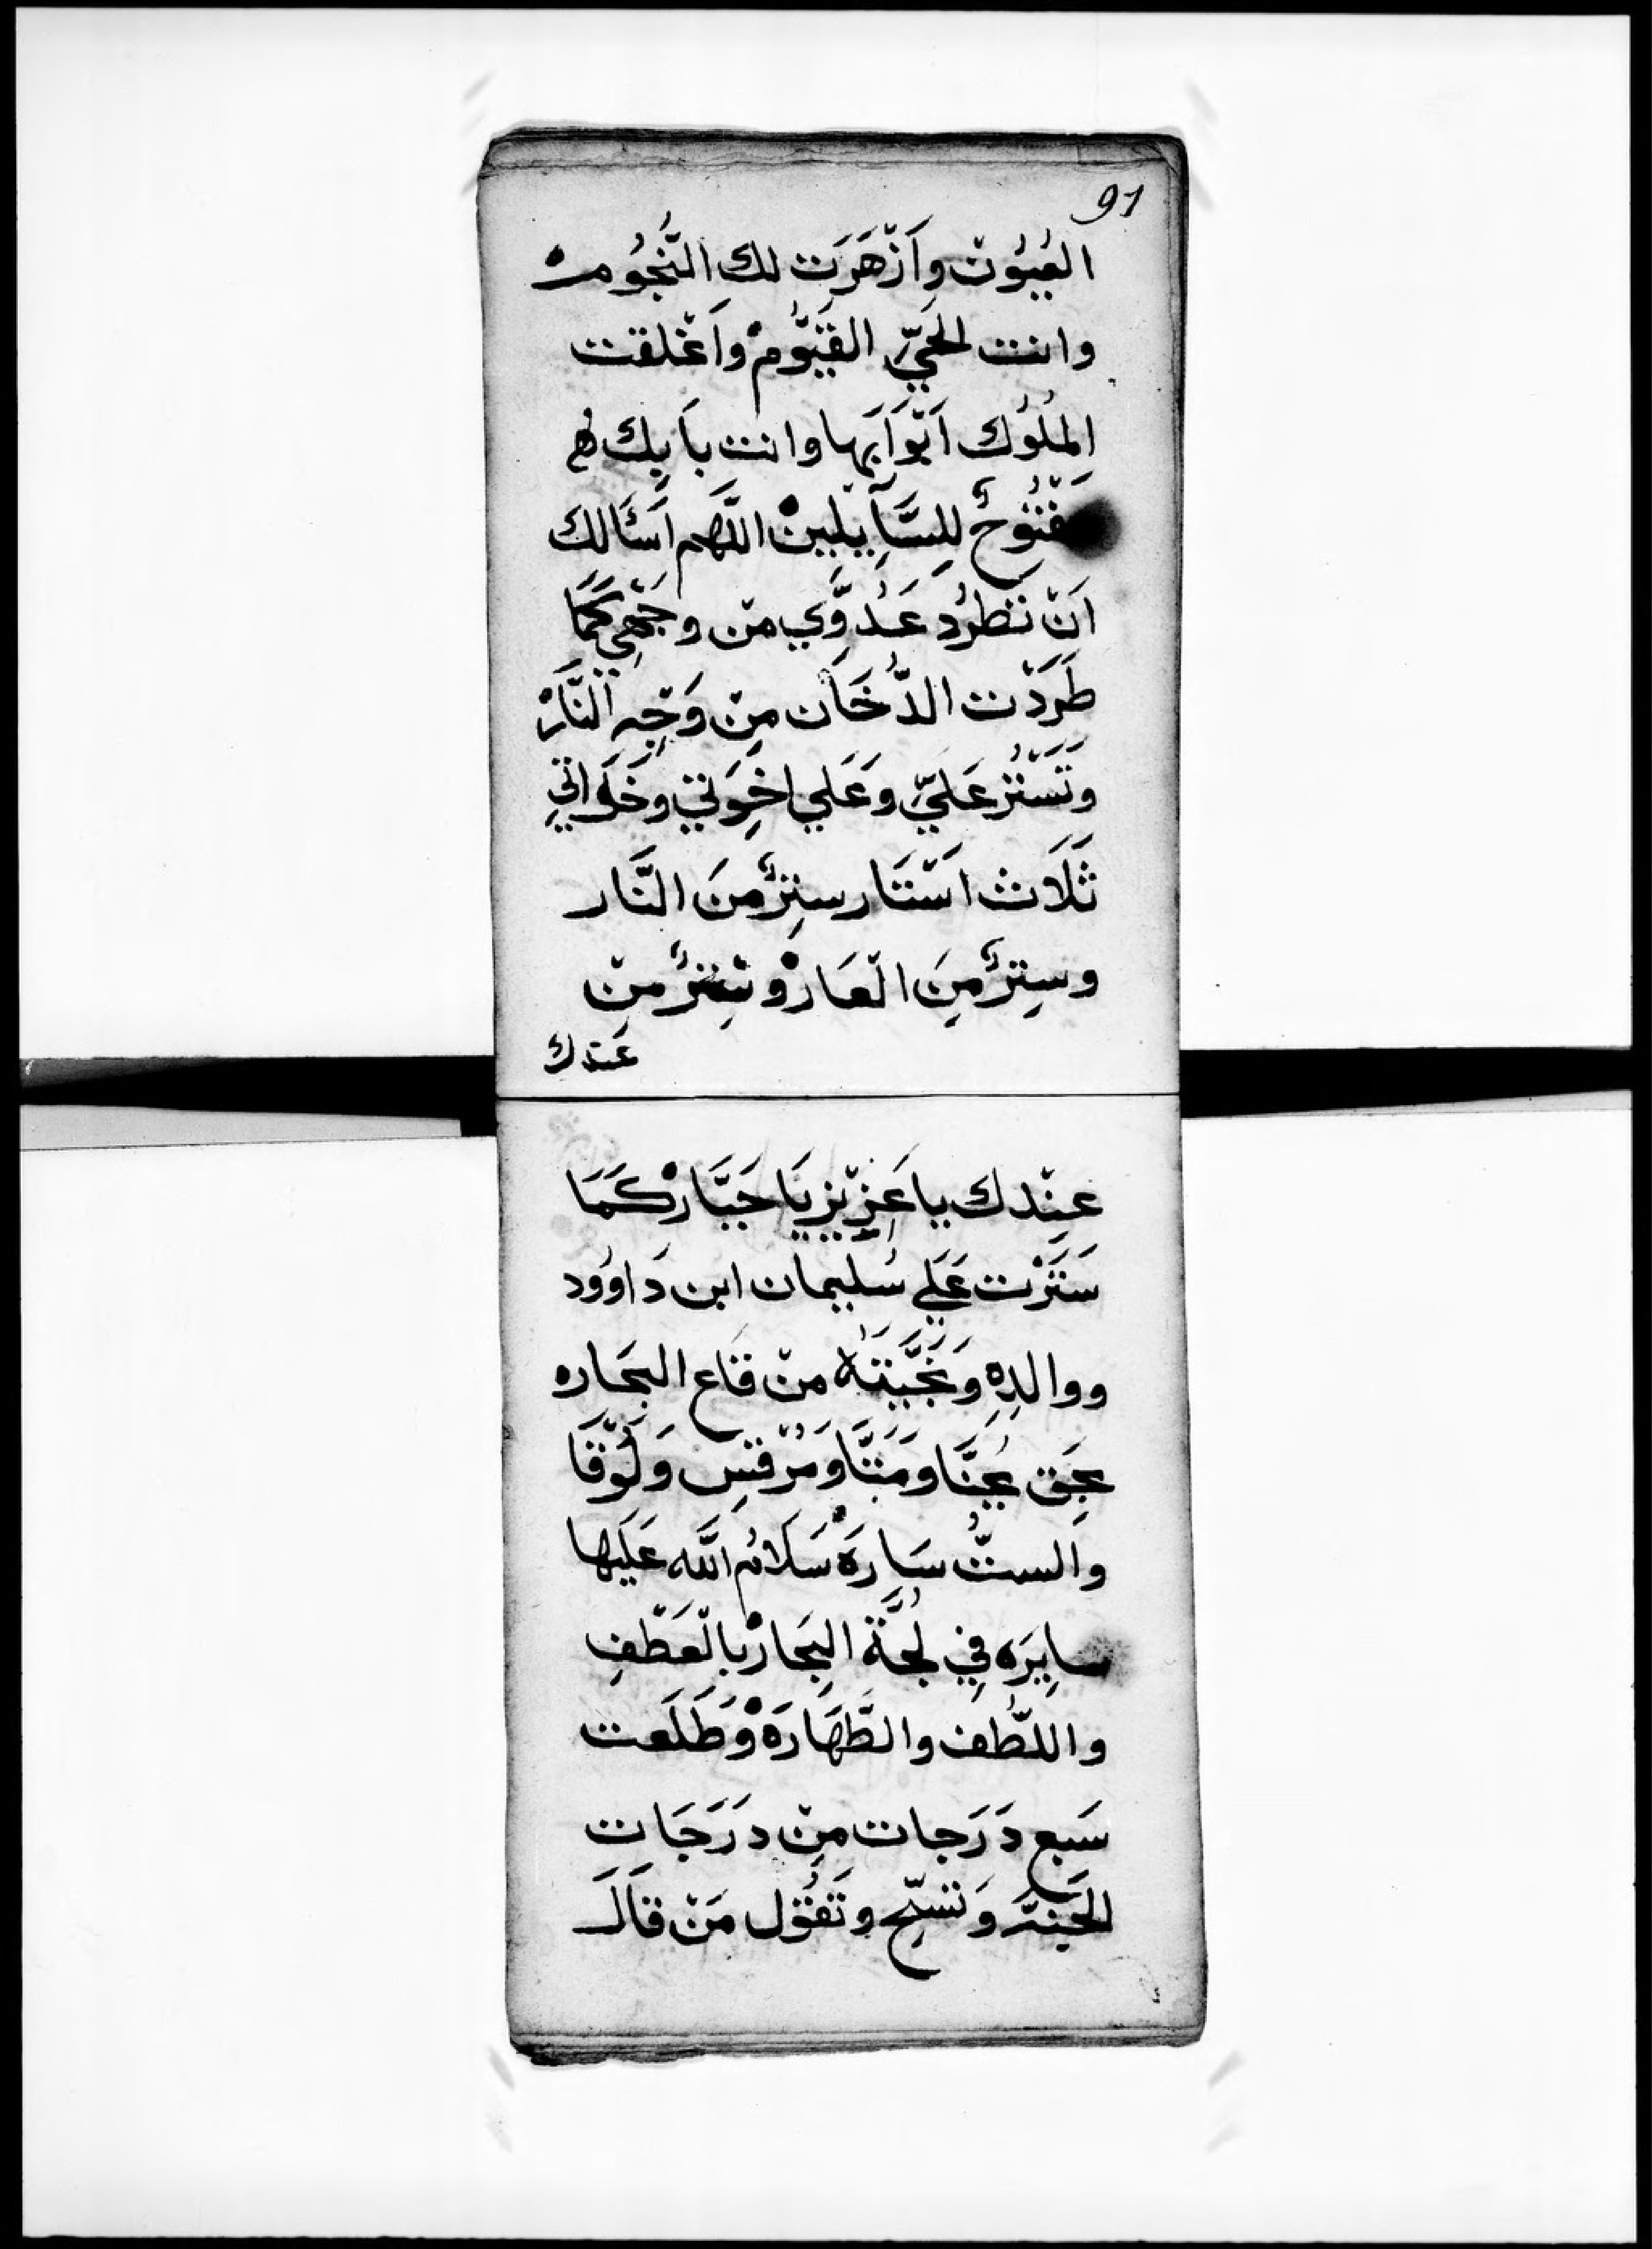 91
العُيُوْن وَاَزْهَرَت لك النُّجُومْ
وانت الحَيّ القَيُّومْ وَاَغْلقت
المُلُوك اَبْوَابَها وانت بَابك
مَفْتُوحٌ لِلسَّآيِلِينْ اللَّهم اَسْئَالك
اَنْ تَطرُد عَدُوِّي منْ وجْهِي كَمَا
طَرَدْت الدُّخَان مِنْ وَجْهِ النَّارْ
وَتَسْتُر عَليّ وَعَلي اخِوَتي وخَلَواتي
ثَلَاث اَسْتَار سِترٌ مِنَ النَّار
وسِترٌ مِنَ الْعَارْ وسِترٌ مِنْ
عندك
عِنْدك يا عَزِيْز يَا جَبَّارْ كَمَا
سَتَرْت عَلي سُليمان ابن دَاوُود
ووالدِهِ وَنَجَّيْتَهُ منْ قَاع البحَاره
بحَق يُحنَّا وَمَتَّا وَمَرْقُسِ وَلُوْقَا
والستُّ سَارَهْ سَلَامُ اللَّه عَلَيها
سايِرَه فِي لُجَّة البحَارْ بالْعَطْفِ
واللُّطف والطَّهَارَهْ وَطَلَعت
سَبع دَرَجات مِنْ دَرَجَات
الجَنَّه وَتسبِّح وتَقُوْل مَنْ قَالَ